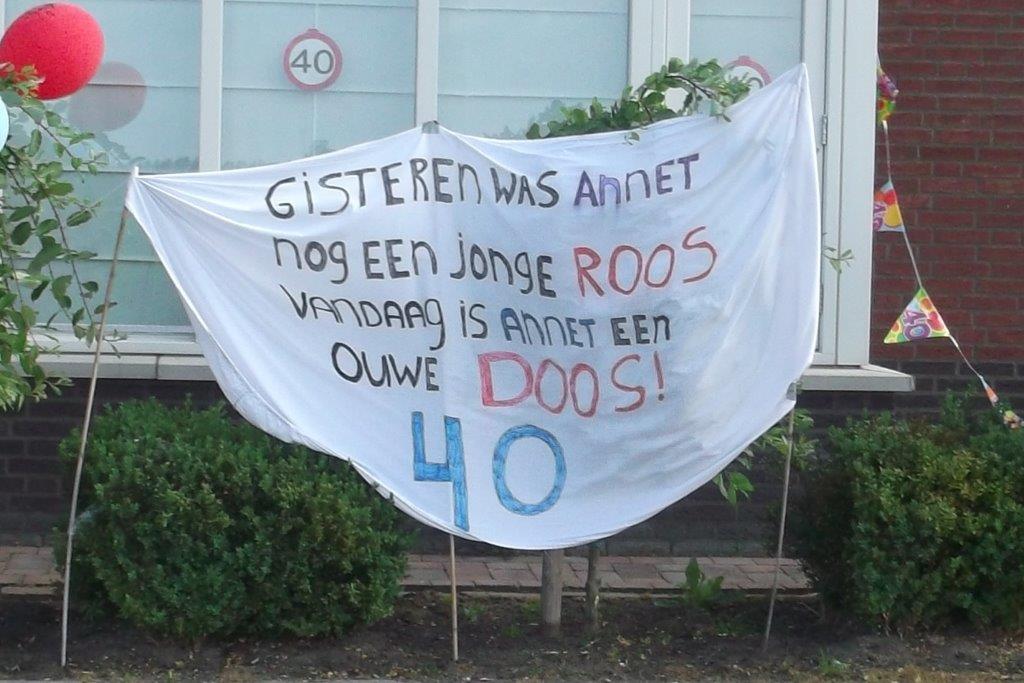 40
GiSTEREN WAS ANNET
nog EEN jonge ROOS
VANDAAg iS ANNET EEN
OUWE DOOS!
40
40